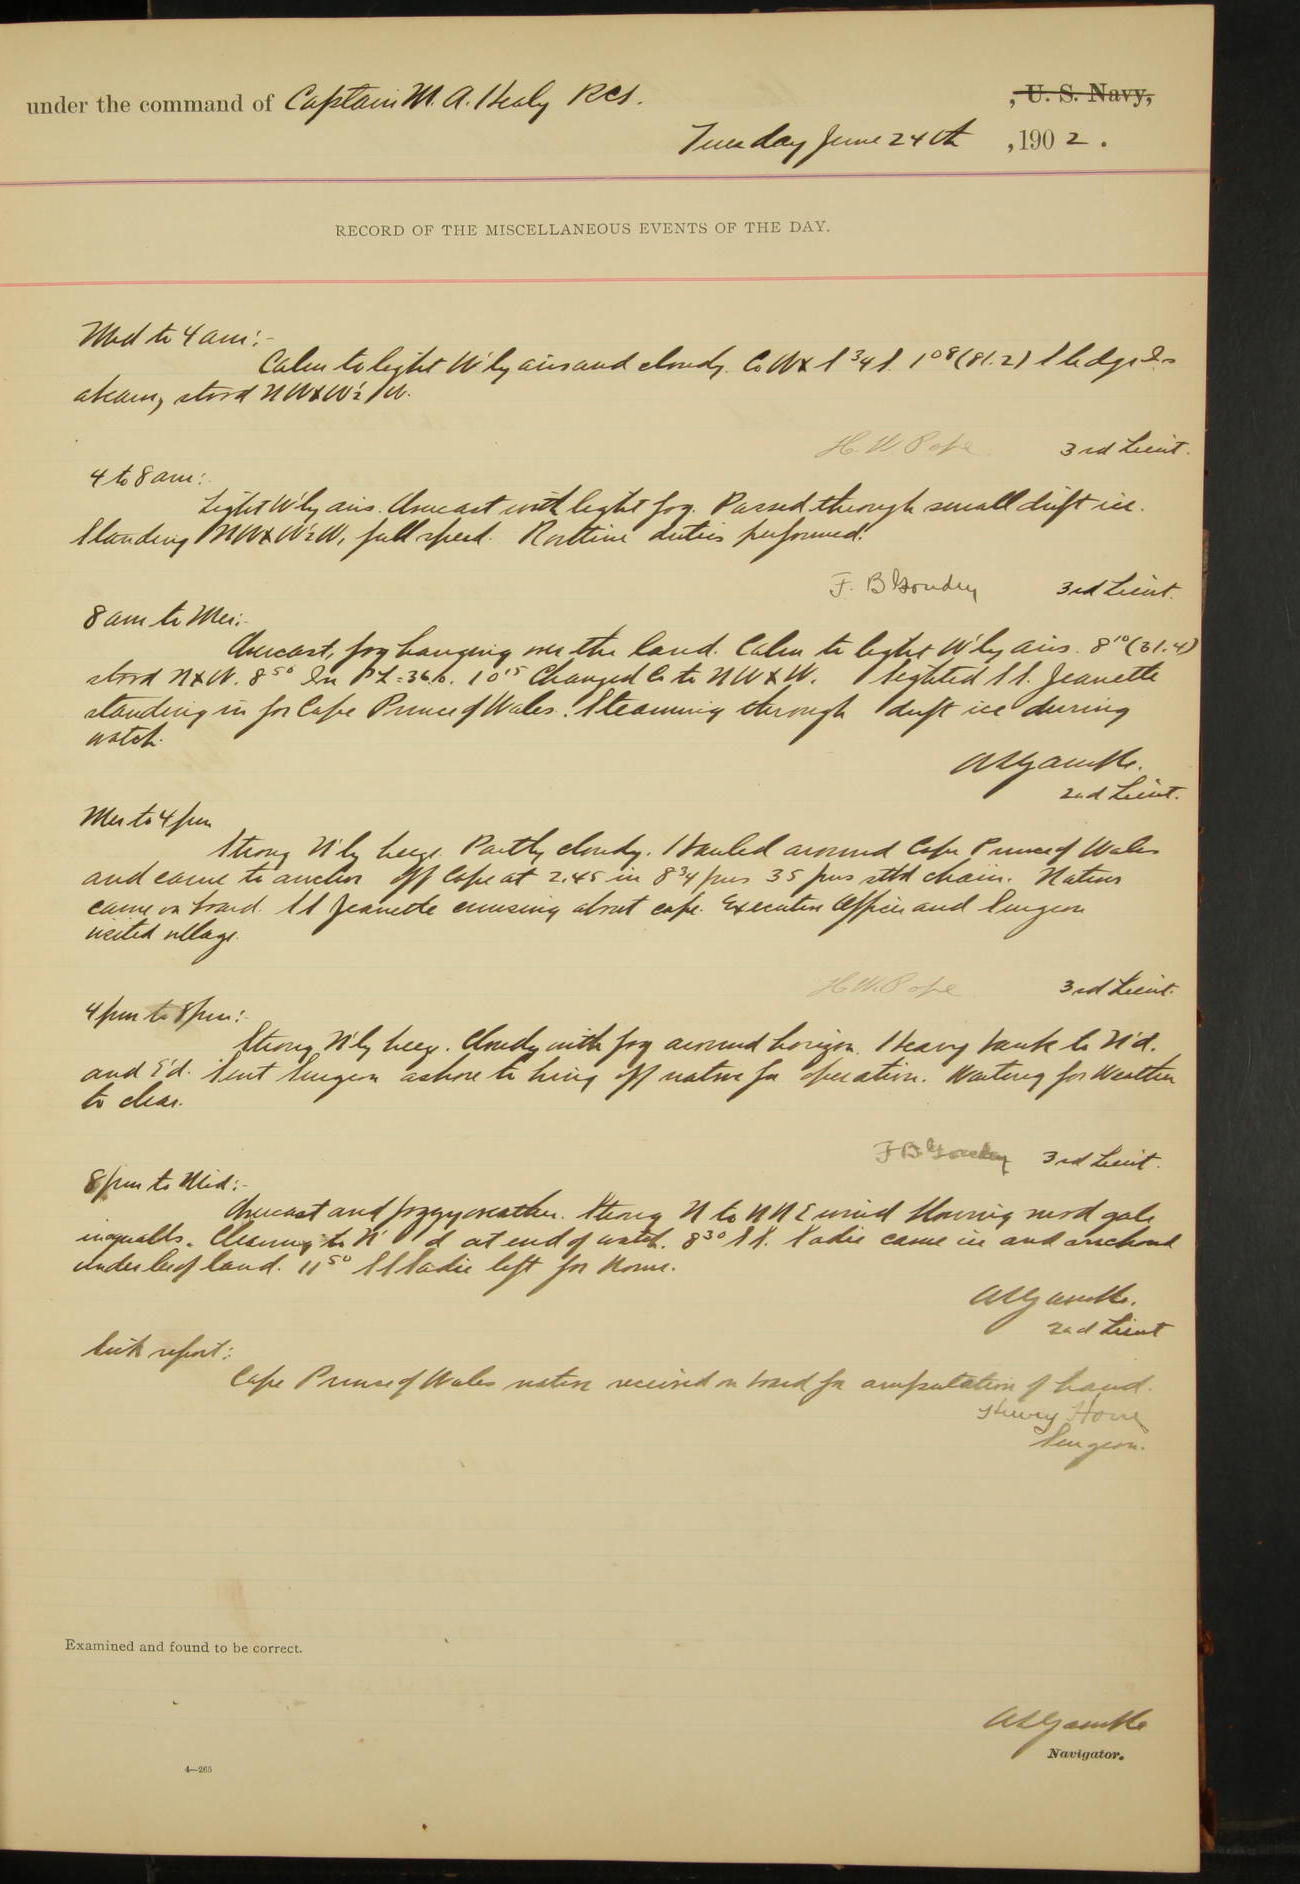 under the command of Captain M. A. Healy RCS. , U. S. Navy,
Tuesday June 24th , 190 2 .
RECORD OF THE MISCELLANEOUS EVENTS OF THE DAY.
Mid to 4 am:-
Calm to light W'ly airs and cloudy. Co WxS 3/4 S. 1 08 (81.2) Sledge Is
abeam, stood NWxW 1/2 W.
H. W. Pope 3rd Lieut.
4 to 8 am:-
Light W'ly airs. Overcast with light fog. Passed through small drift ice.
Standing NWxW 1/2 W, full speed. Routine duties performed.
F. B. Goudey 3rd Lieut.
8 am to Mer:-
Overcast, fog hanging over the land. Calm to light W'ly airs. 8 10 (31.4)
stood NxW. 8 50 PL = 36.6. 10 15 Changed Co to NWxW. Sighted SS. Jeanette
standing in for Cape Prince of Wales. Steaming through drift ice during
watch.
A. L. Gamble.
2nd Lieut.
Mer to 4 pm
Strong N'ly breeze. Partly cloudy. Hauled around Cape Prince of Wales
and came to anchor off Cape at 2.45 in 8 3/4 fms 35 fms stbd chain. Natives
came on board. SS Jeanette cruising about cape. Executive Officer and Surgeon
visited village.
H. W. Pope 3rd Lieut.
4 pm to 8 pm:-
Strong N'ly breeze. Cloudy with fog around horizon. Heavy bank to N'd.
and E'd. Sent Surgeon ashore to bring off native for operation. Waiting for Weather
to clear.
F B Goudey 3rd Lieut.
8 pm to Mid:-
Overcast and foggy weather. Strong N to NNE wind blowing mod gale
in squalls. Clearing to N'd at end of watch. 8 30 SS. Sadie came in and anchored
under lee of land. 11 50 SS Sadie left for Nome.
A. L. Gamble.
2nd Lieut
Sick report:
Cape Prince of Wales native received on board for amputation of hand.
Henry Horn
Surgeon.
Examined and found to be correct.
A. L. Gamble
Navigator.
4—265